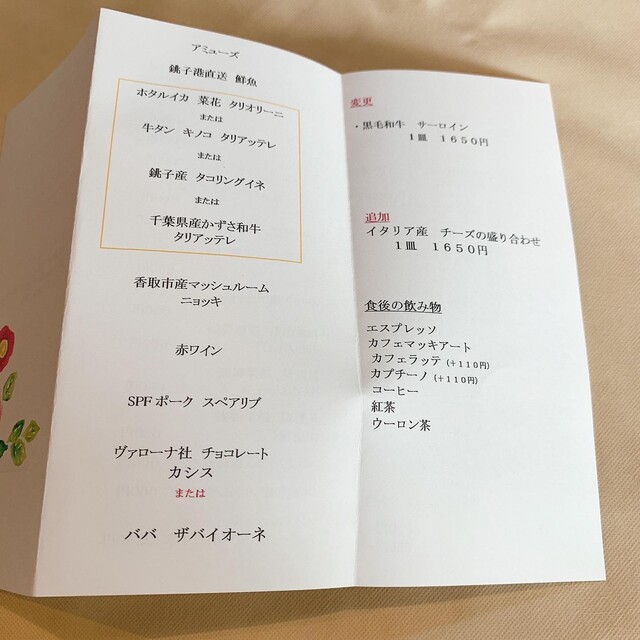 アミューズ
銚子港直送 鮮魚
ホタルイカ 菜花 タリオリーニ
または
牛タン キノコ タリアッテレ
または
銚子産 タコリングイネ
または
千葉県産かずさ和牛
タリアッテレ
香取市産マッシュルーム
ニョッキ
赤ワイン
SPFポーク スペアリブ
ヴァローナ社 チョコレート
カシス
または
ババ ザバイオーネ
変更
・黒毛和牛 サーロイン
1皿 1650円
追加
イタリア産 チーズの盛り合わせ
1皿 1650円
食後の飲み物
エスプレッソ
カフェマッキアート
カフェラッテ(+110円)
カプチーノ(+110円)
コーヒー
紅茶
ウーロン茶